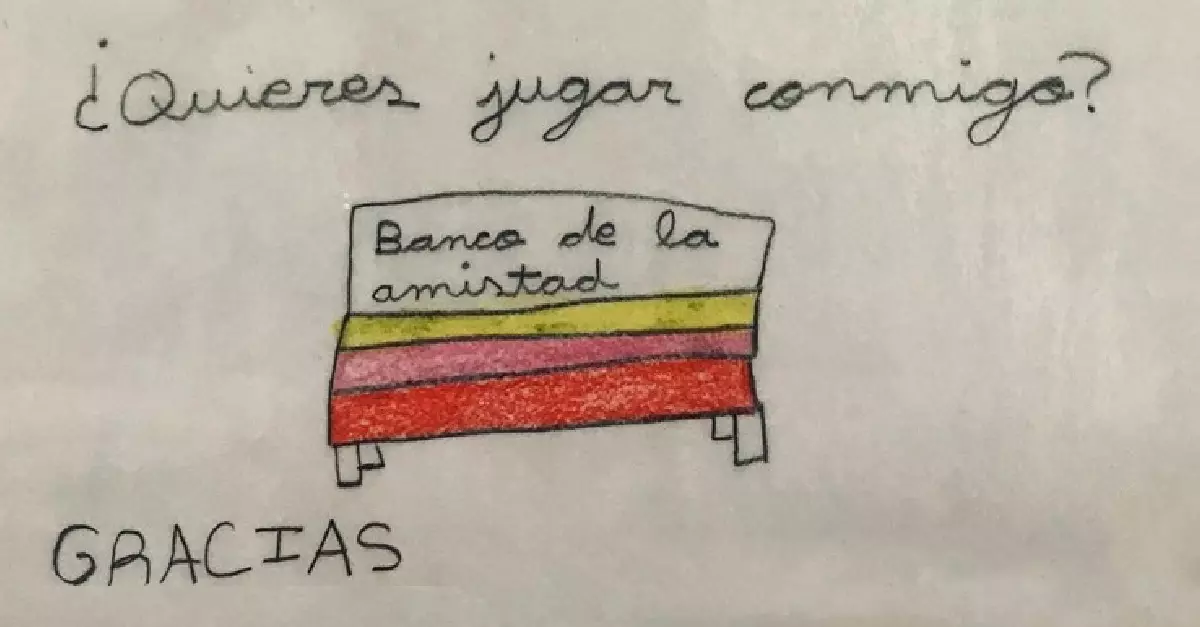 ¿Quieres jugar conmigo?
Banco de la
amistad
GRACIAS